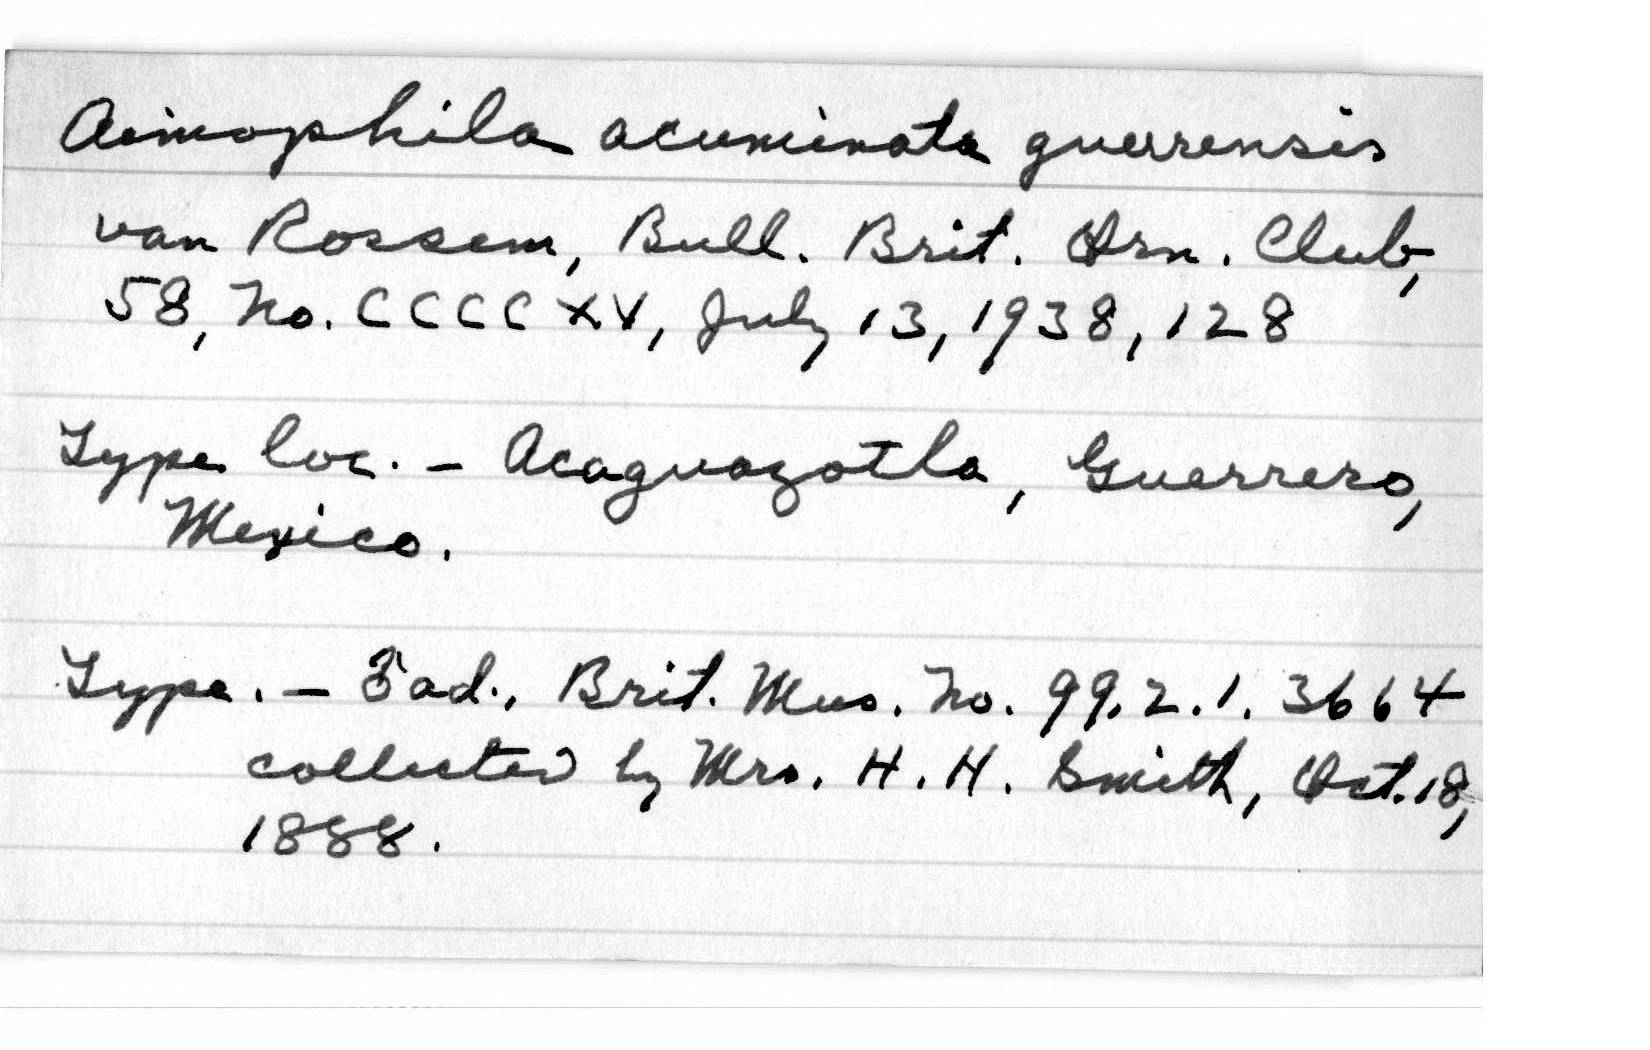 Aimophila acuminata guerrensis
van Rossem, Bull. Brit. Orn. Club,
58, No. CCCCXV, July 13, 1938, 128
Type loc. - Acaguazotla, Guerrero,
Mexico.
Type. - ♂ ad., Brit. Mus. No. 99.2.1.3664
collected by Mrs. H. H. Smith, Oct. 18,
1888.